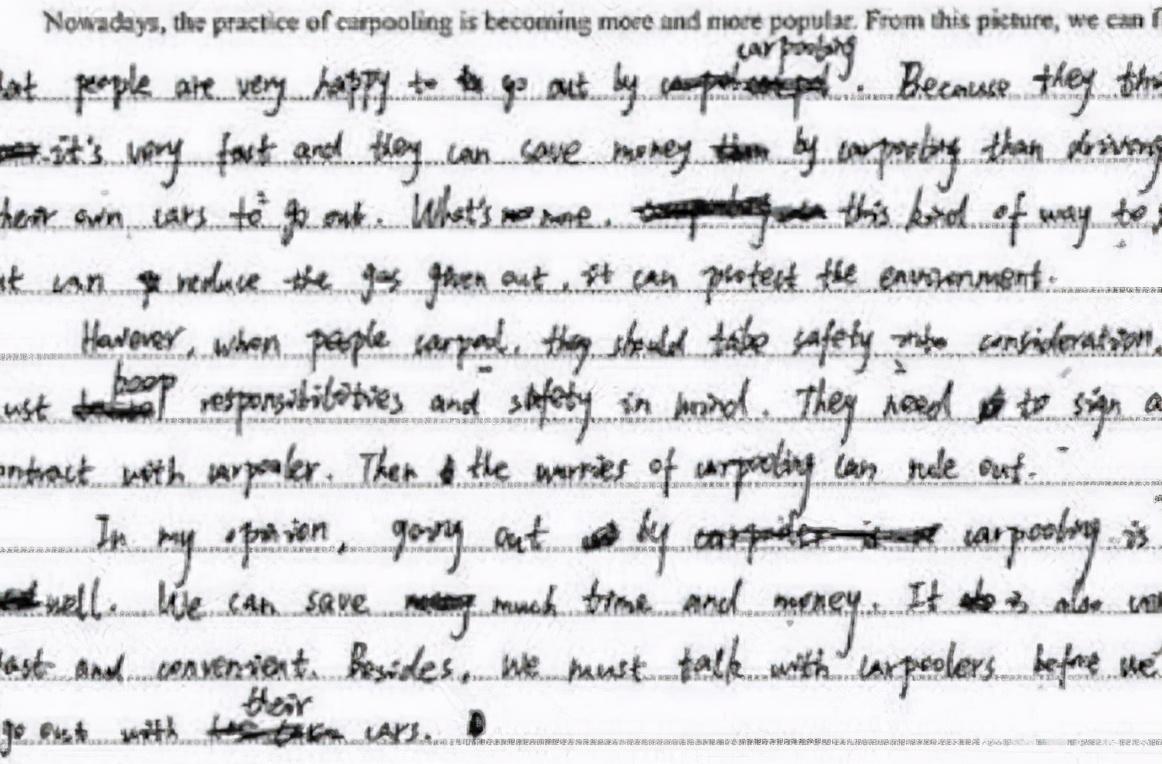 Nowadays, the practice of carpooling is becoming more and more popular. From this picture, we can
people are very happy to go out by carpooling. Because they
it's very fast and they can save money by carpooling than driving
own cars to go out. What's more, this kind of way to
can reduce the gas given out, it can protect the environment.
However, when people carpool, they should take safety into consideration.
keep responsibilities and safety in mind. They need to sign a
with carpooler. Then the worries of carpooling can rule out.
In my opinion, going out by carpooling is
well. We can save much time and money. It is also
and convenient. Besides, we must talk with carpoolers before we
go out with their cars.